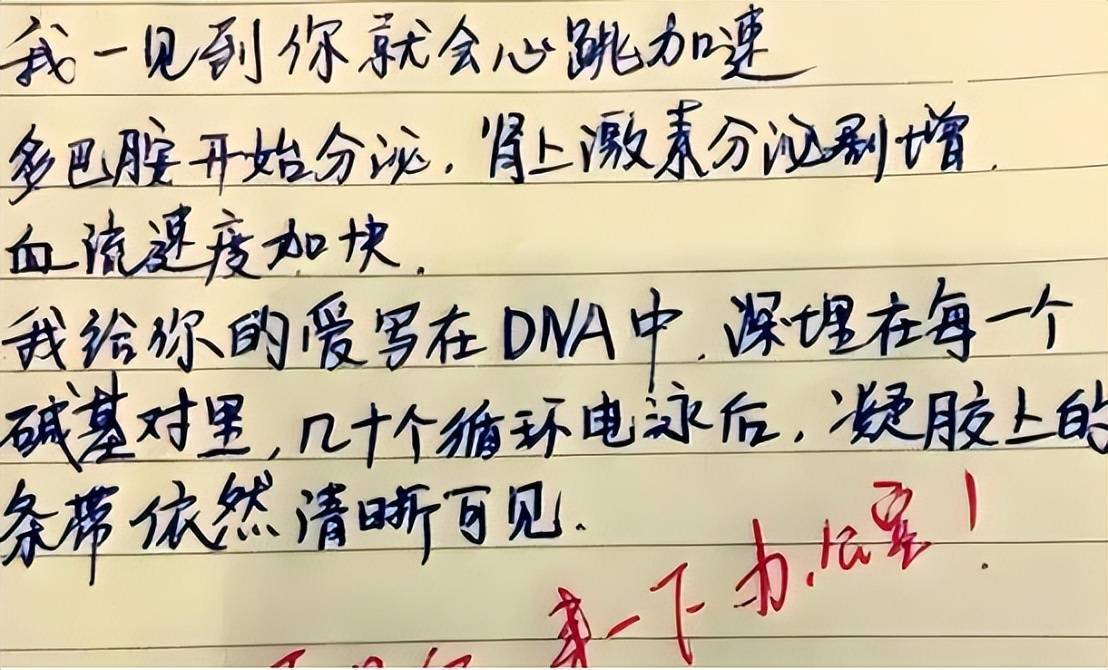 我一见到你就会心跳加速
多巴胺开始分泌，肾上激素分泌剧增．
血流速度加快．
我给你的爱写在DNA中，深埋在每一个
碱基对里，几十个循环电泳后，凝胶上的
条带依然清晰可见．
来一下办公室！